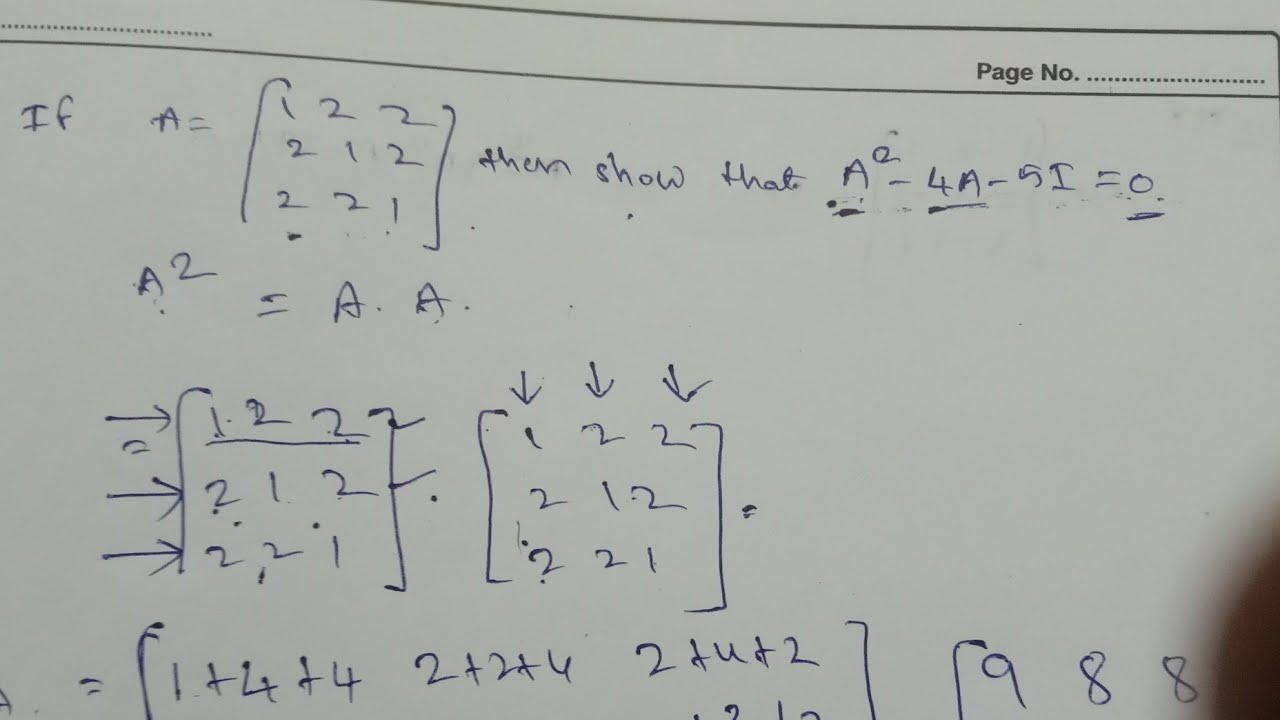 Page No. ........................
If A = [1 2 2
2 1 2
2 2 1] then show that A² - 4A - 5I = 0
A² = A . A .
= [1 2 2
2 1 2
2 2 1] . [1 2 2
2 1 2
2 2 1] =
= [1+4+4 2+2+4 2+4+2] [9 8 8